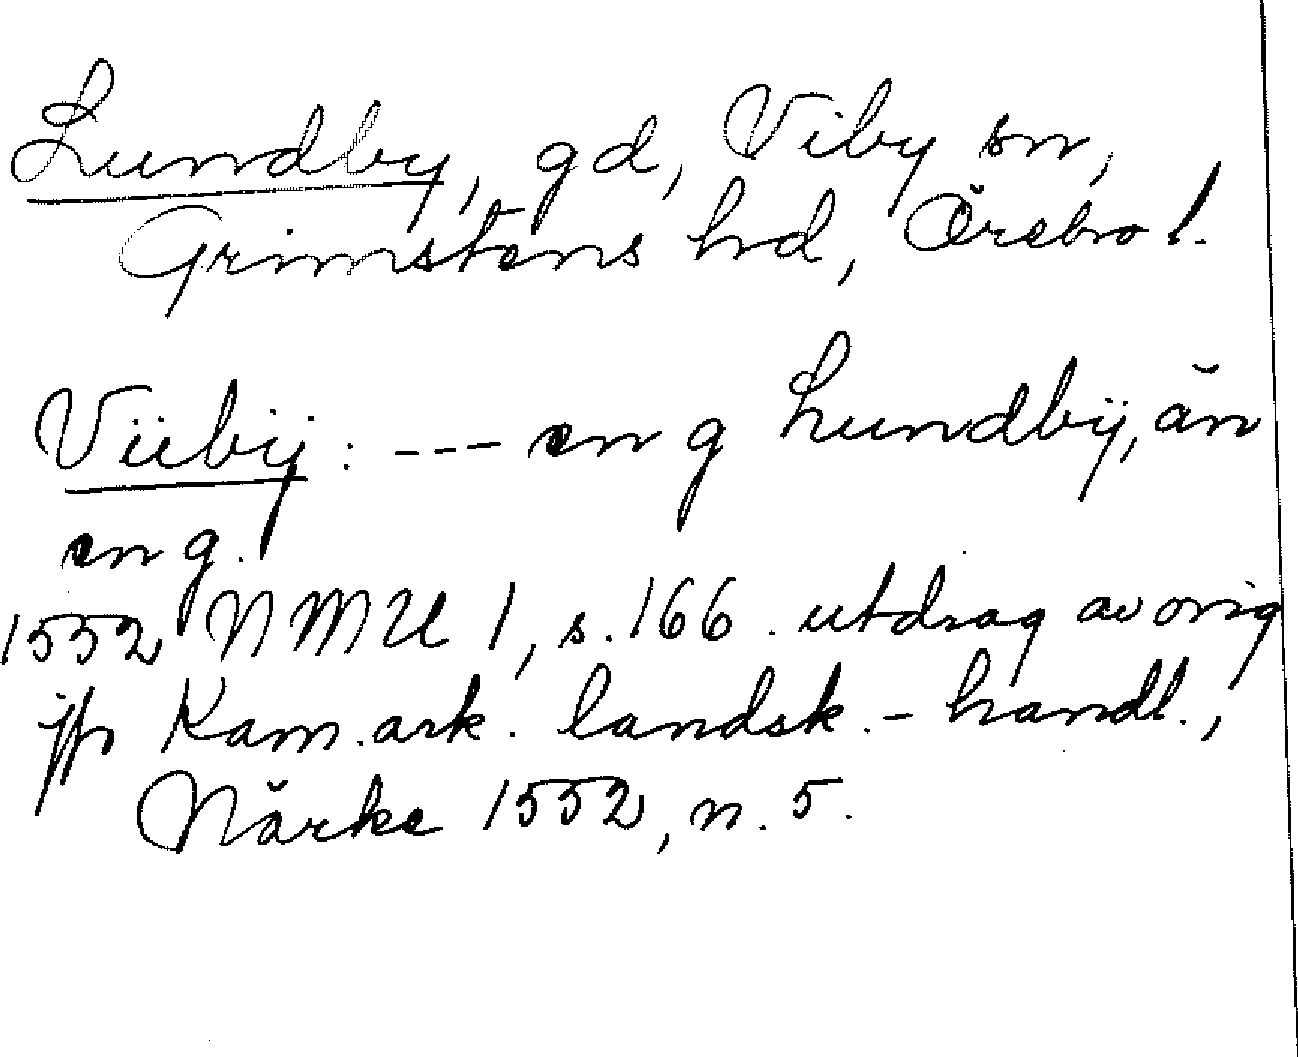 Lundby, gd, Viby sn,
Grimstens hd, Örebro l.
Viibÿ: --- en g Lundbÿ, än
en g.
1552 NMU 1, s. 166. utdrag av orig
jfr Kam. ark. landsk. - handl.,
Närke 1552, n. 5.